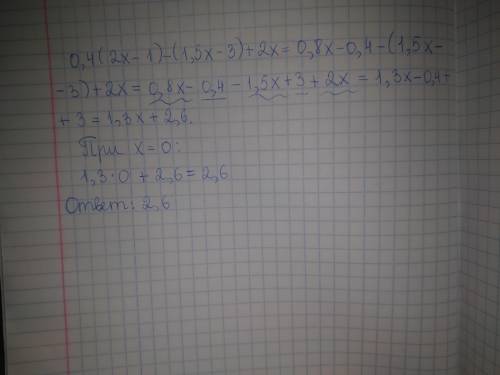 0,4(2x-1)-(1,5x-3)+2x=0,8x-0,4-(1,5x-
-3)+2x=0,8x-0,4-1,5x+3+2x=1,3x-0,4+
+3=1,3x+2,6.
При x=0:
1,3·0+2,6=2,6
Ответ: 2,6